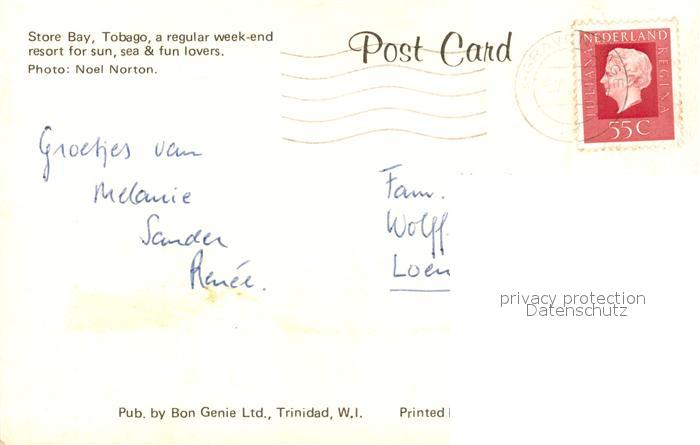 Store Bay, Tobago, a regular week-end
resort for sun, sea & fun lovers.
Photo: Noel Norton.
Post Card
NEDERLAND
JULIANA
REGINA
55C
Groetjes van
Melanie
Sander
Renée.
Fam.
Wolff
Loen
privacy protection
Datenschutz
Pub. by Bon Genie Ltd., Trinidad, W.I.
Printed